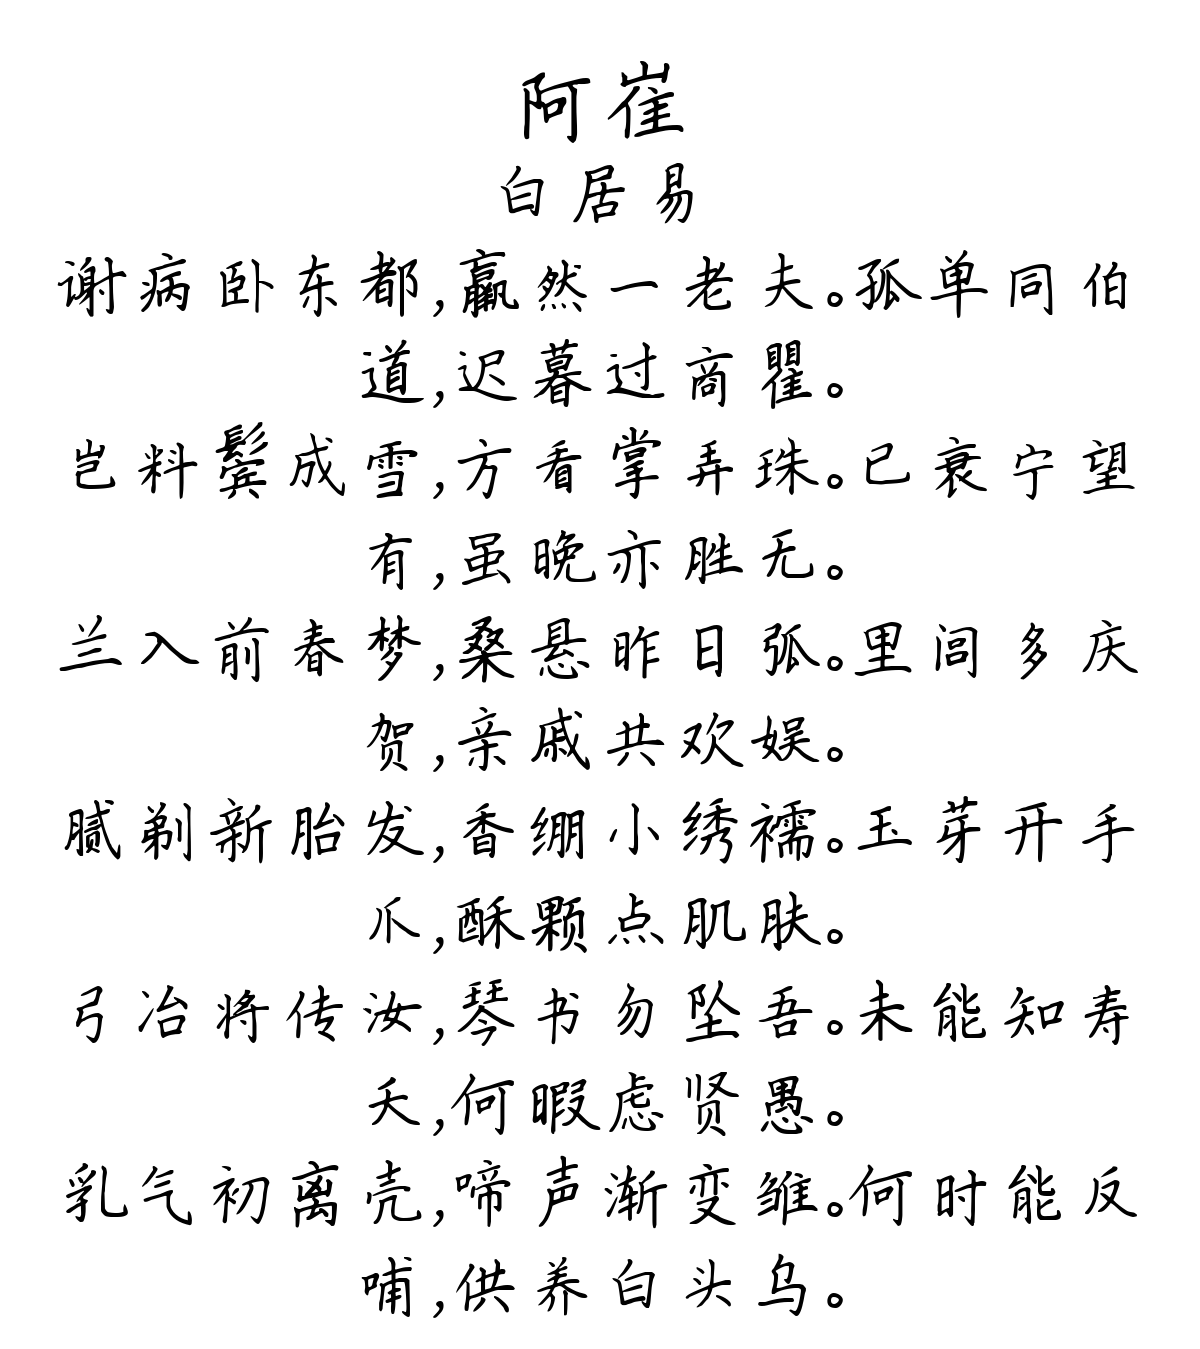 阿崔
白居易
谢病卧东都,羸然一老夫。孤单同伯
道,迟暮过商瞿。
岂料鬓成雪,方看掌弄珠。已衰宁望
有,虽晚亦胜无。
兰入前春梦,桑悬昨日弧。里闾多庆
贺,亲戚共欢娱。
腻剃新胎发,香绷小绣襦。玉芽开手
爪,酥颗点肌肤。
弓冶将传汝,琴书勿坠吾。未能知寿
夭,何暇虑贤愚。
乳气初离壳,啼声渐变雏。何时能反
哺,供养白头乌。